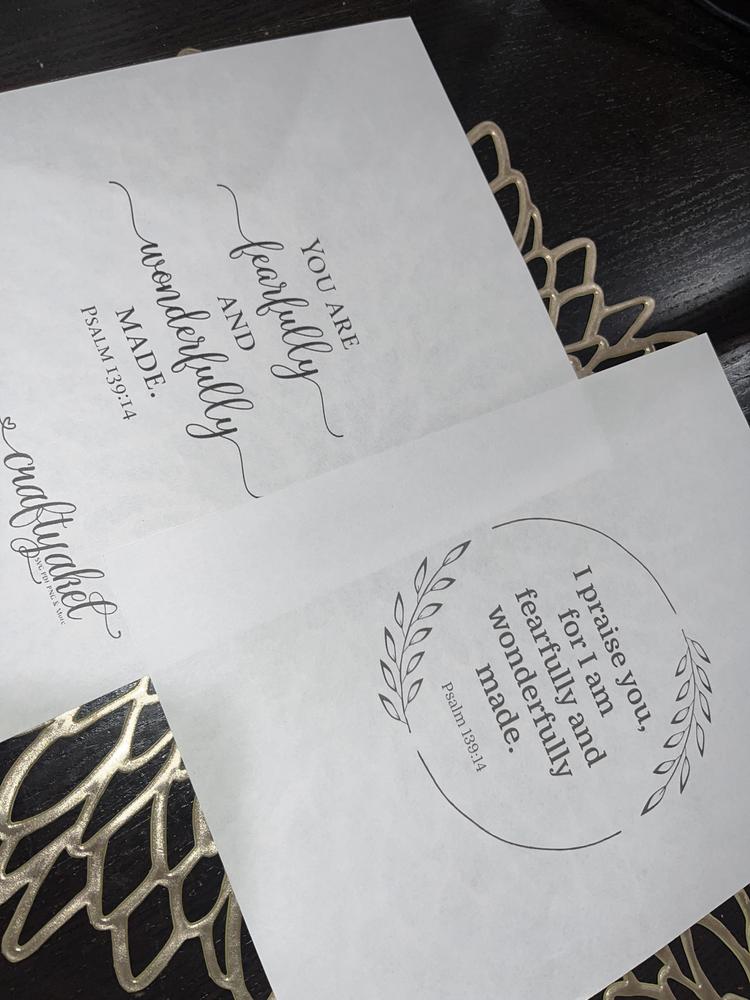 YOU ARE
fearfully
AND
wonderfully
MADE.
PSALM 139:14
craftyaket
SVG PDF PNG & More
I praise you,
for I am
fearfully and
wonderfully
made.
Psalm 139:14